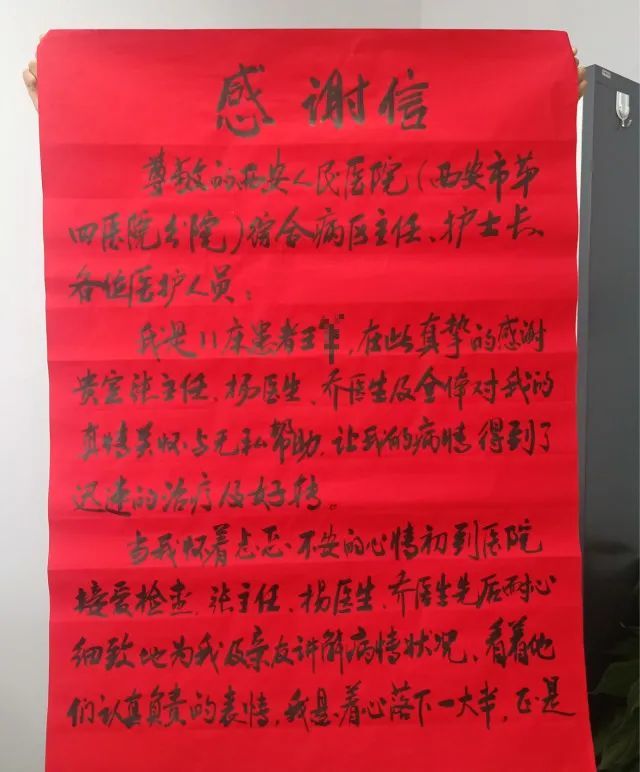 感谢信
尊敬的西安人民医院(西安市第
四医院分院)综合病区主任、护士长、
各位医护人员:
我是11床患者王,在此真挚的感谢
贵室张主任、杨医生、乔医生及全体对我的
真情关怀与无私帮助,让我的病情得到了
迅速的治疗及好转。
当我怀着忐忑不安的心情初到医院
接受检查,张主任、杨医生、乔医生先后耐心
细致地为我及亲友讲解病情状况、看着他
们认真负责的表情,我悬着心落下一大半,正是